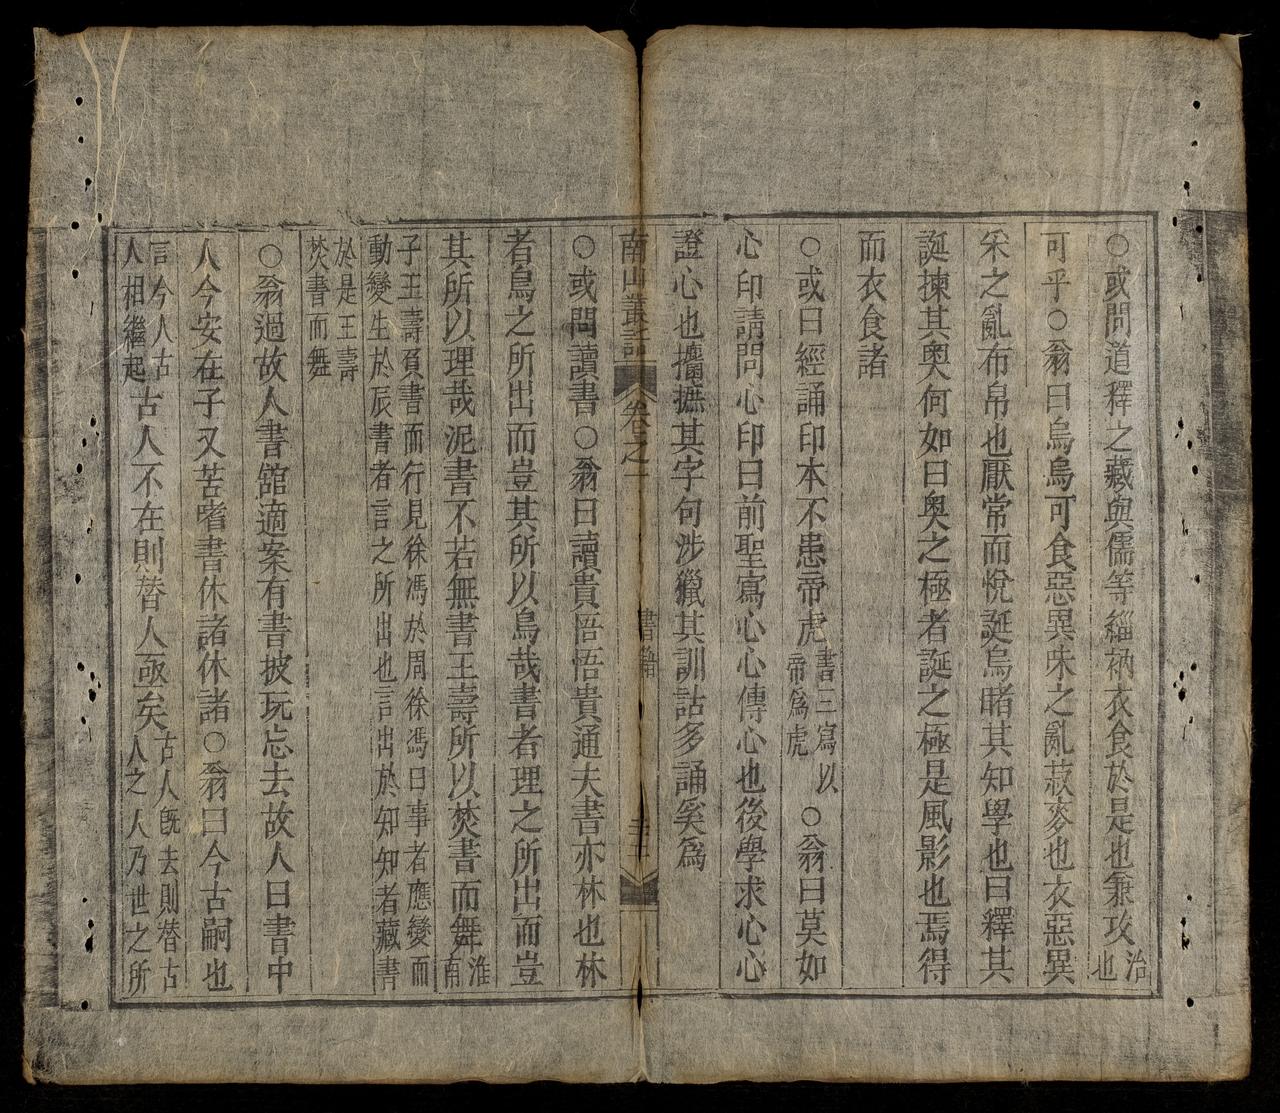 ○或問道釋之藏與儒等緇衲衣食於是也兼攻治也
可乎○翁曰烏烏可食惡異味之亂菽麥也衣惡異
采之亂布帛也厭常而悅誕烏睹其知學也曰釋其
誕揀其奧何如曰奧之極者誕之極是風影也焉得
而衣食諸
○或曰經誦印本不患帝虎書三寫以帝爲虎○翁曰莫如
心印請問心印曰前聖寫心心傳心也後學求心心
證心也攟摭其字句涉獵其訓詁多誦奚爲
南山叢話 卷之一 書籍
○或問讀書○翁曰讀貴悟悟貴通夫書亦林也林
者鳥之所出而豈其所以鳥哉書者理之所出而豈
其所以理哉泥書不若無書王壽所以焚書而舞淮南
子王壽負書而行見徐馮於周徐馮曰事者應變而
動變生於辰書者言之所出也言出於知知者藏書
於是王壽
焚書而舞
○翁過故人書舘適案有書披玩忘去故人曰書中
人今安在子又苦嗜書休諸休諸○翁曰今古嗣也
言今人古人相繼起古人不在則替人亟矣古人既去則替古人之人乃世之所